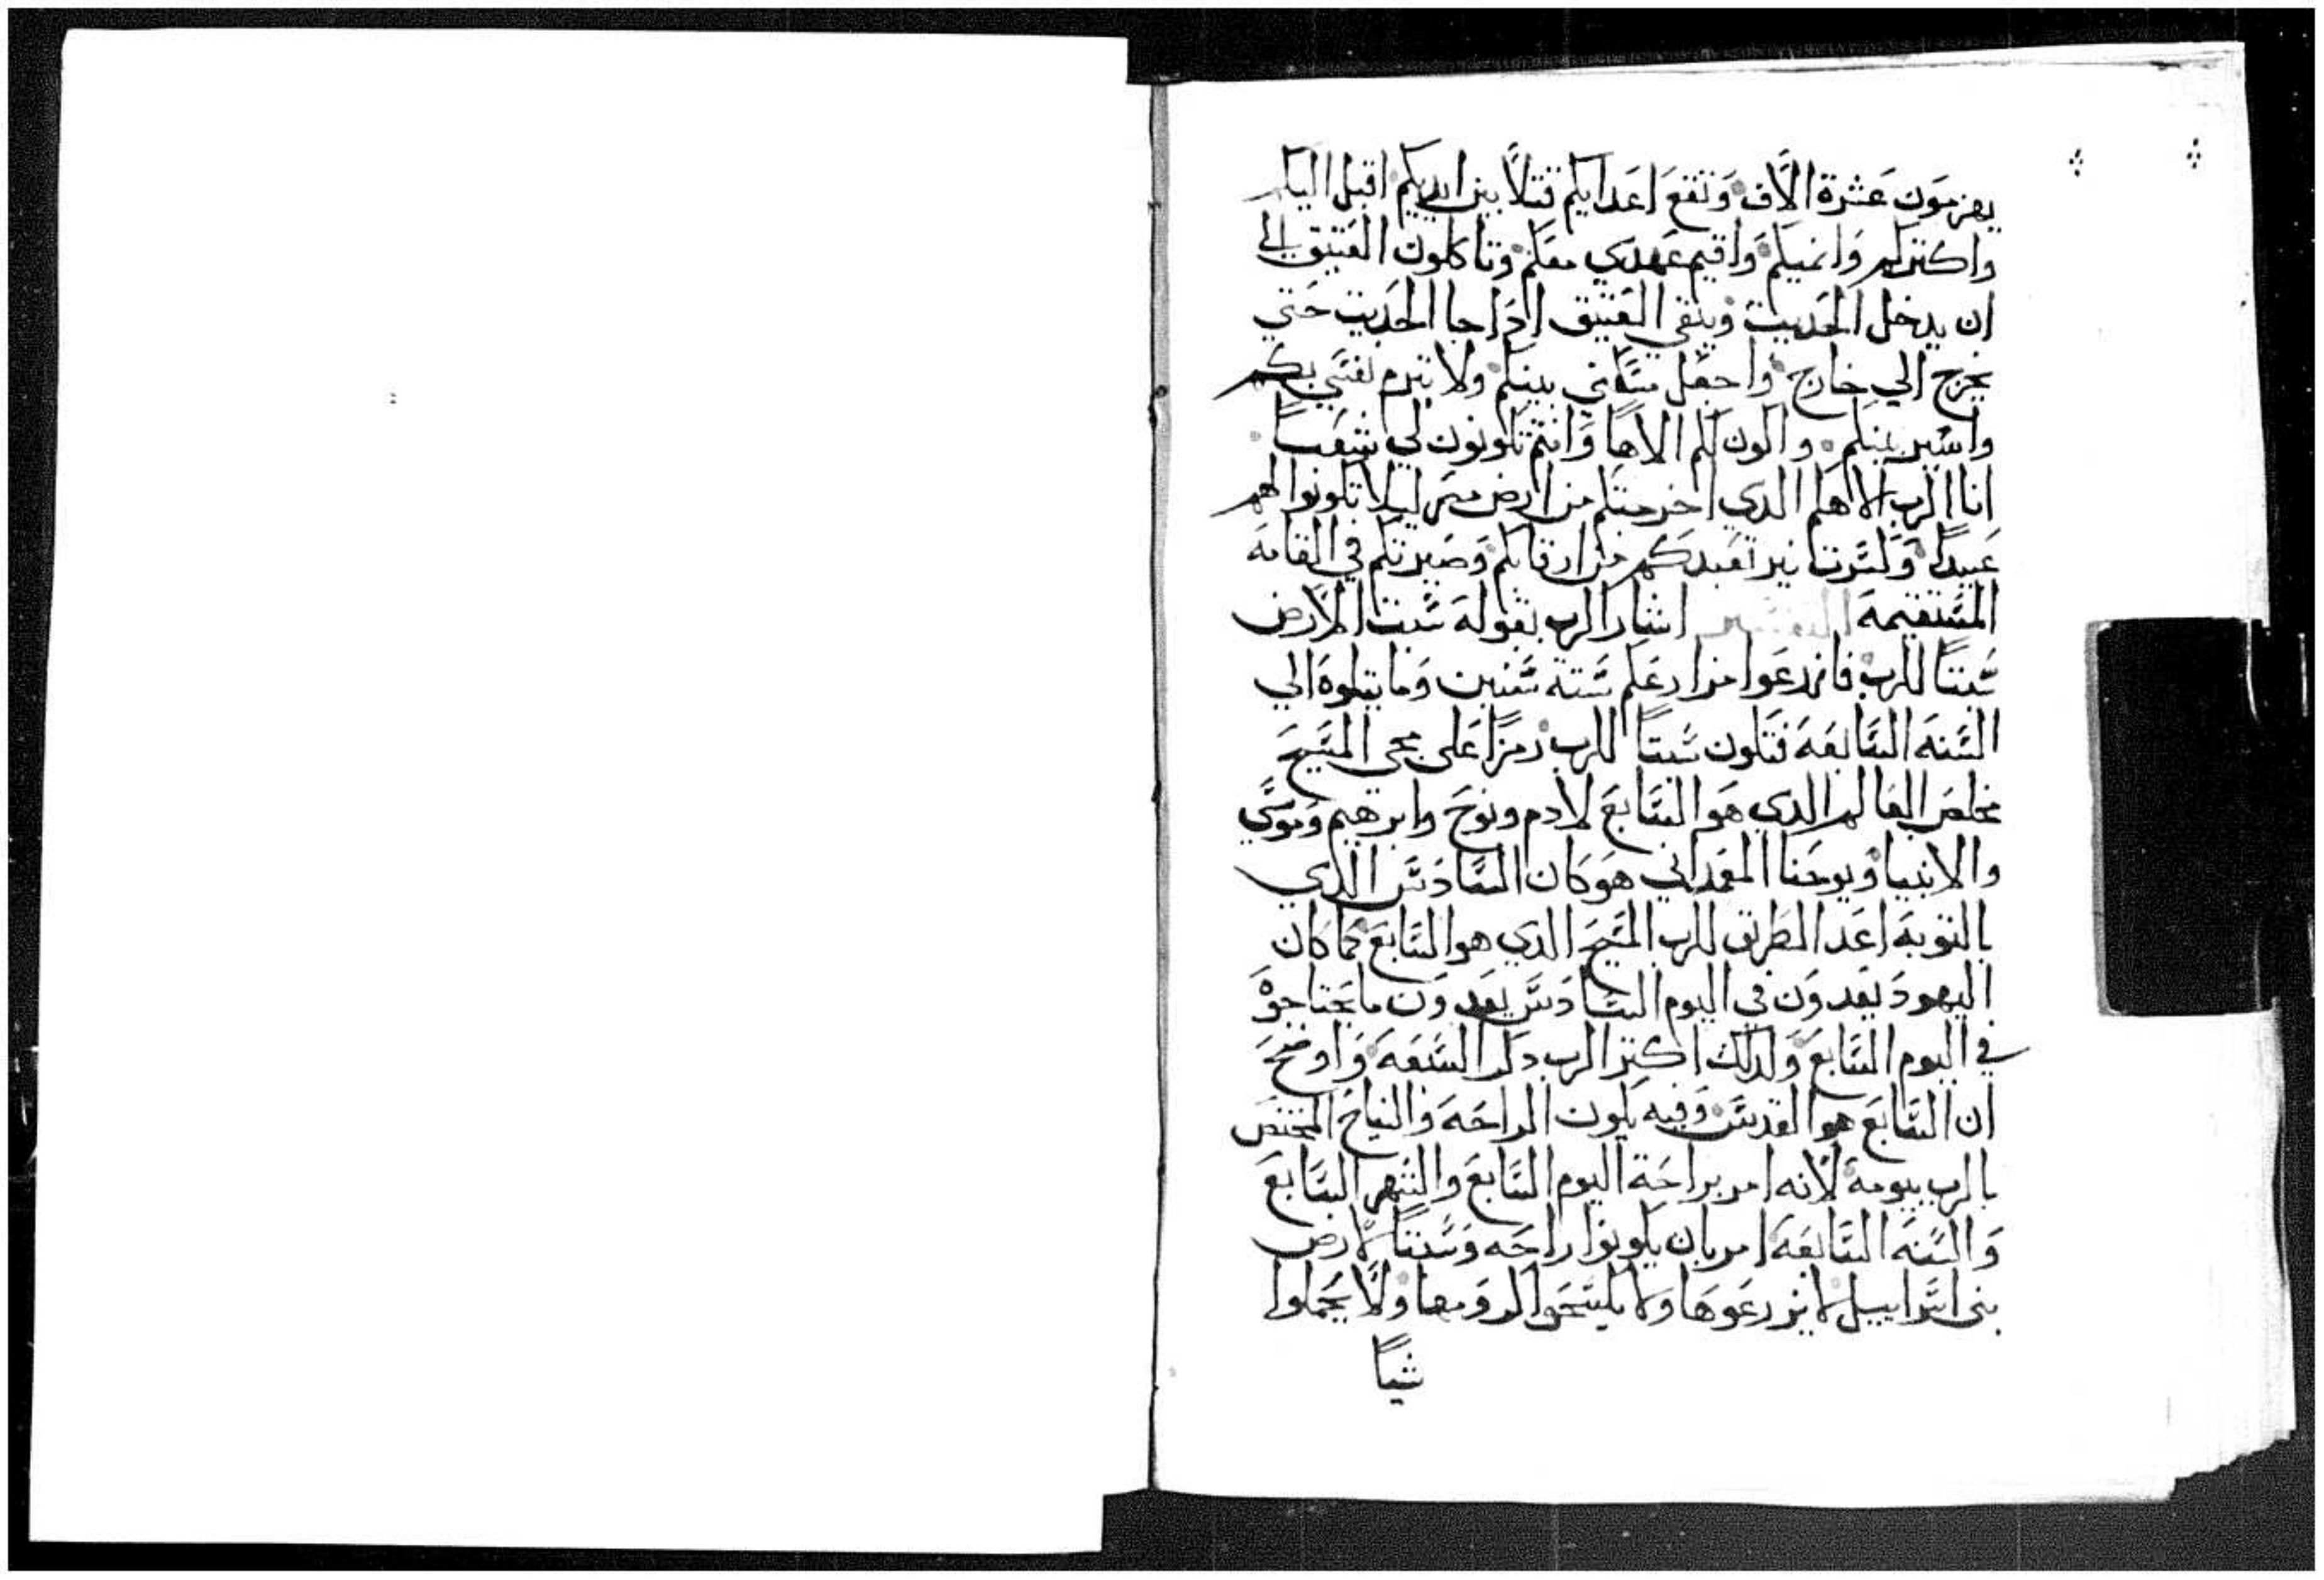 يهزمون عشرة الاف وتقع اعدايكم قتلاً بين ايديكم اقبل اليكم
واكتركم وانميكم واقيم عهدي معكم وتاكلون العتيق الي
ان يدخل الحديت ويبقي العتيق اداجا الحديت حتي
يخرج الي خارج واجعل مسكني بينكم ولا تردم نفسي بكم
واسير بينكم واكون لكم الاهاً وانتم تكونون لي شعباً
انا الرب الاهكم الدي اخرجتكم من ارض مصر ليلا تكونوا لهم
عبيداً وكسرت نير تعبدكم من ارقابكم وصيرتكم في القامه
المستقيمه التفسير اشار الرب بقوله تسبت الارض
سبتاً للرب فازرعوا مزارعكم سته سنين وما يتلوه الي
السنه السابعه فتكون سبتاً للرب رمزاً علي مجي المسيح
مخلص العالم الدي هو السابع لادم ونوح وابرهيم وموسي
والانبيا ويوحنا المعمداني هو كان السادس الدي
بالتوبه اعد الطريق للرب المسيح الدي هو السابع كما كان
اليهود يعدون في اليوم السادس يعدون ما يحتاجوه
في اليوم السابع ولدلك اكتر الرب دكر السبعه واوضح
ان السابع هو القدس وفيه يكون الراحه والنياح المختص
بالرب بيومه لانه امر براحة اليوم السابع والشهر السابع
والسنه السابعه امر بان يكونوا راحه وسبتاً لارض
بني اسراييل لا يزرعوها ولا يكسحوا كرومها ولا يحملوا
شياً